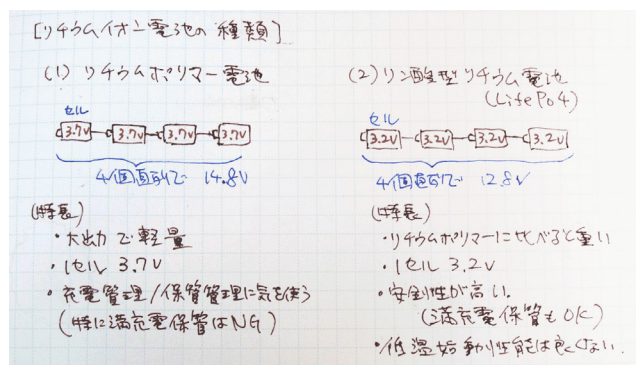 [リチウムイオン電池の種類]
(1) リチウムポリマー電池
セル
3.7V 3.7V 3.7V 3.7V
4個直列で 14.8V
(特長)
・大出力で軽量
・1セル 3.7V
・充電管理/保管管理に気を使う
(特に満充電保管はNG)
(2) リン酸型リチウム電池
(LifePo4)
セル
3.2V 3.2V 3.2V 3.2V
4個直列で 12.8V
(特長)
・リチウムポリマーに比べると重い
・1セル 3.2V
・安全性が高い.
(満充電保管もOK)
・低温始動性能は良くない.